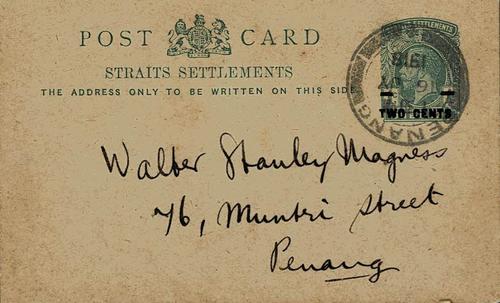 POST CARD
STRAITS SETTLEMENTS
THE ADDRESS ONLY TO BE WRITTEN ON THIS SIDE
SETTLEMENTS
TWO CENTS
PENANG
1918
Walter Stanley Magness
76, Muntri Street
Penang